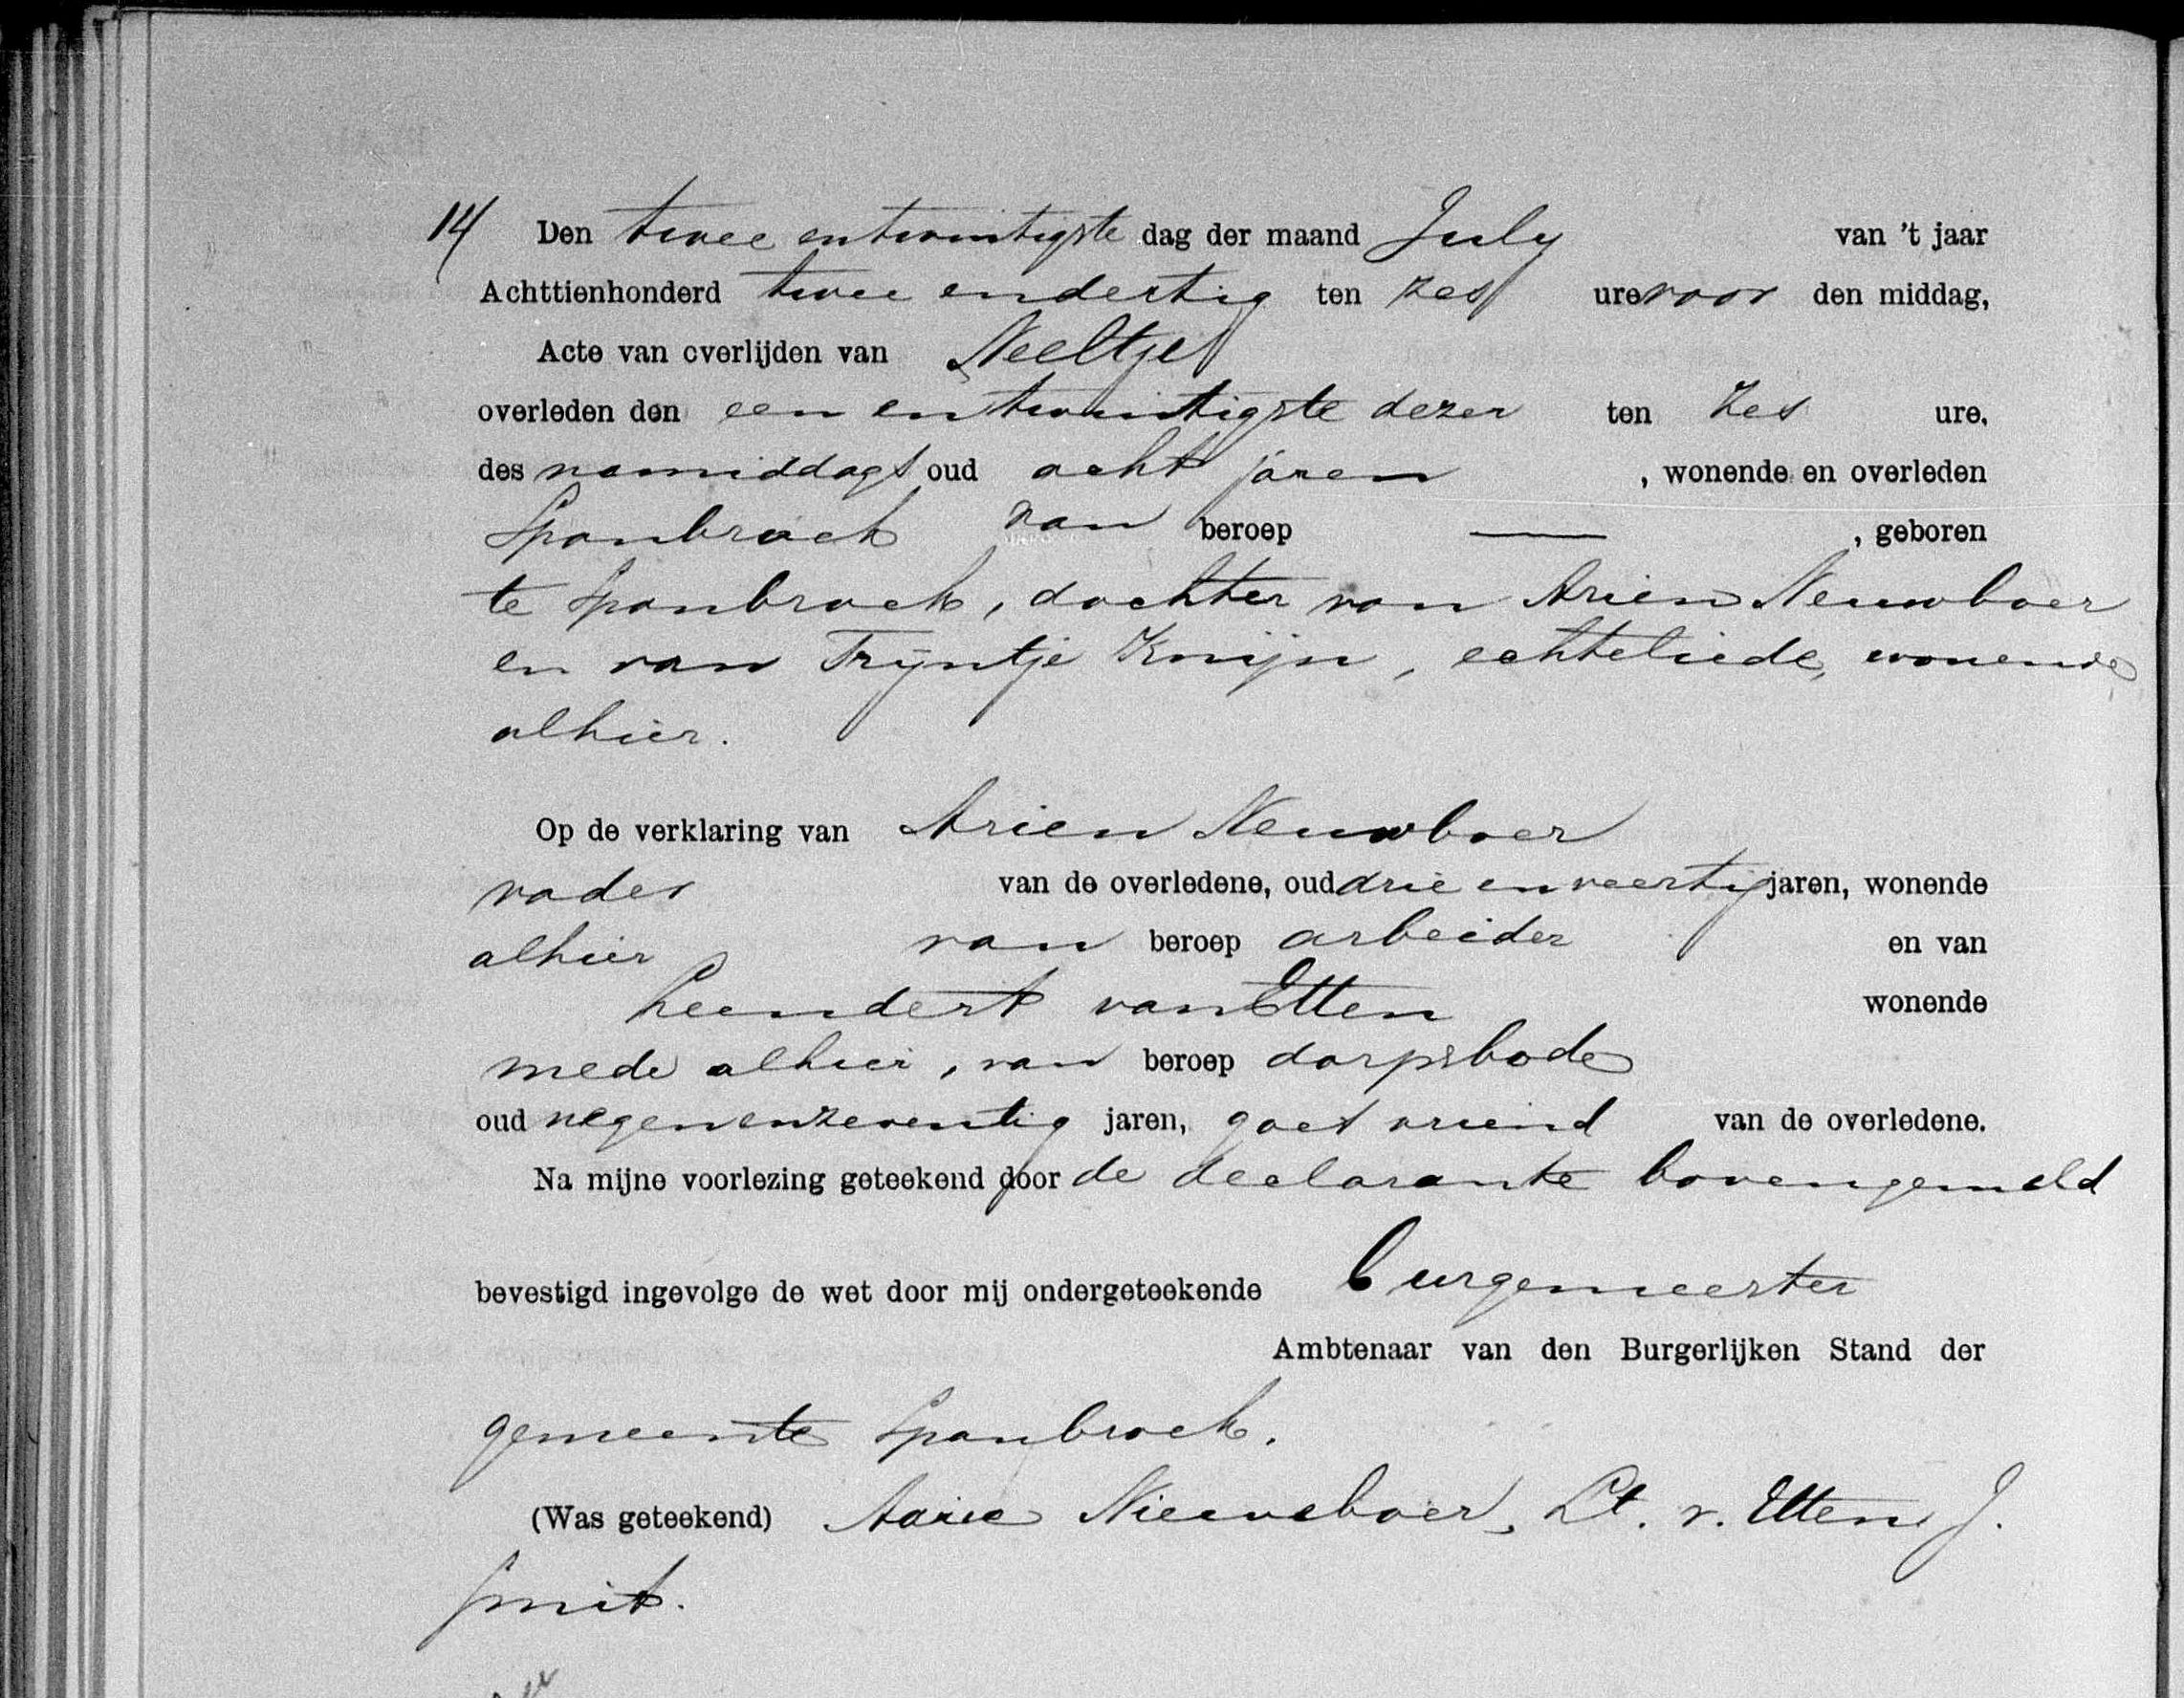 14 Den twee entwintigste dag der maand July van 't jaar
Achttienhonderd twee endertig ten zes ure voor den middag,
Acte van overlijden van Neeltje
overleden den een entwintigste dezer ten zes ure,
des namiddags oud acht jaren , wonende en overleden
Spanbroek van beroep — , geboren
te Spanbroek, dochter van Arien Neuwboer
en van Trijntje Knijn, echteliede, wonende
alhier.
Op de verklaring van Arien Neuwboer
vader van de overledene, oud drie en veertig jaren, wonende
alhier van beroep arbeider en van
Leendert van Etten wonende
mede alhier, van beroep dorpsbode
oud negenenzeventig jaren, goet vriend van de overledene.
Na mijne voorlezing geteekend door de declarante bovengemeld
bevestigd ingevolge de wet door mij ondergeteekende burgemeester
Ambtenaar van den Burgerlijken Stand der
gemeente Spanbroek.
(Was geteekend) Aarie Nieuwboer, Lt. v. Etten, J.
Smit.